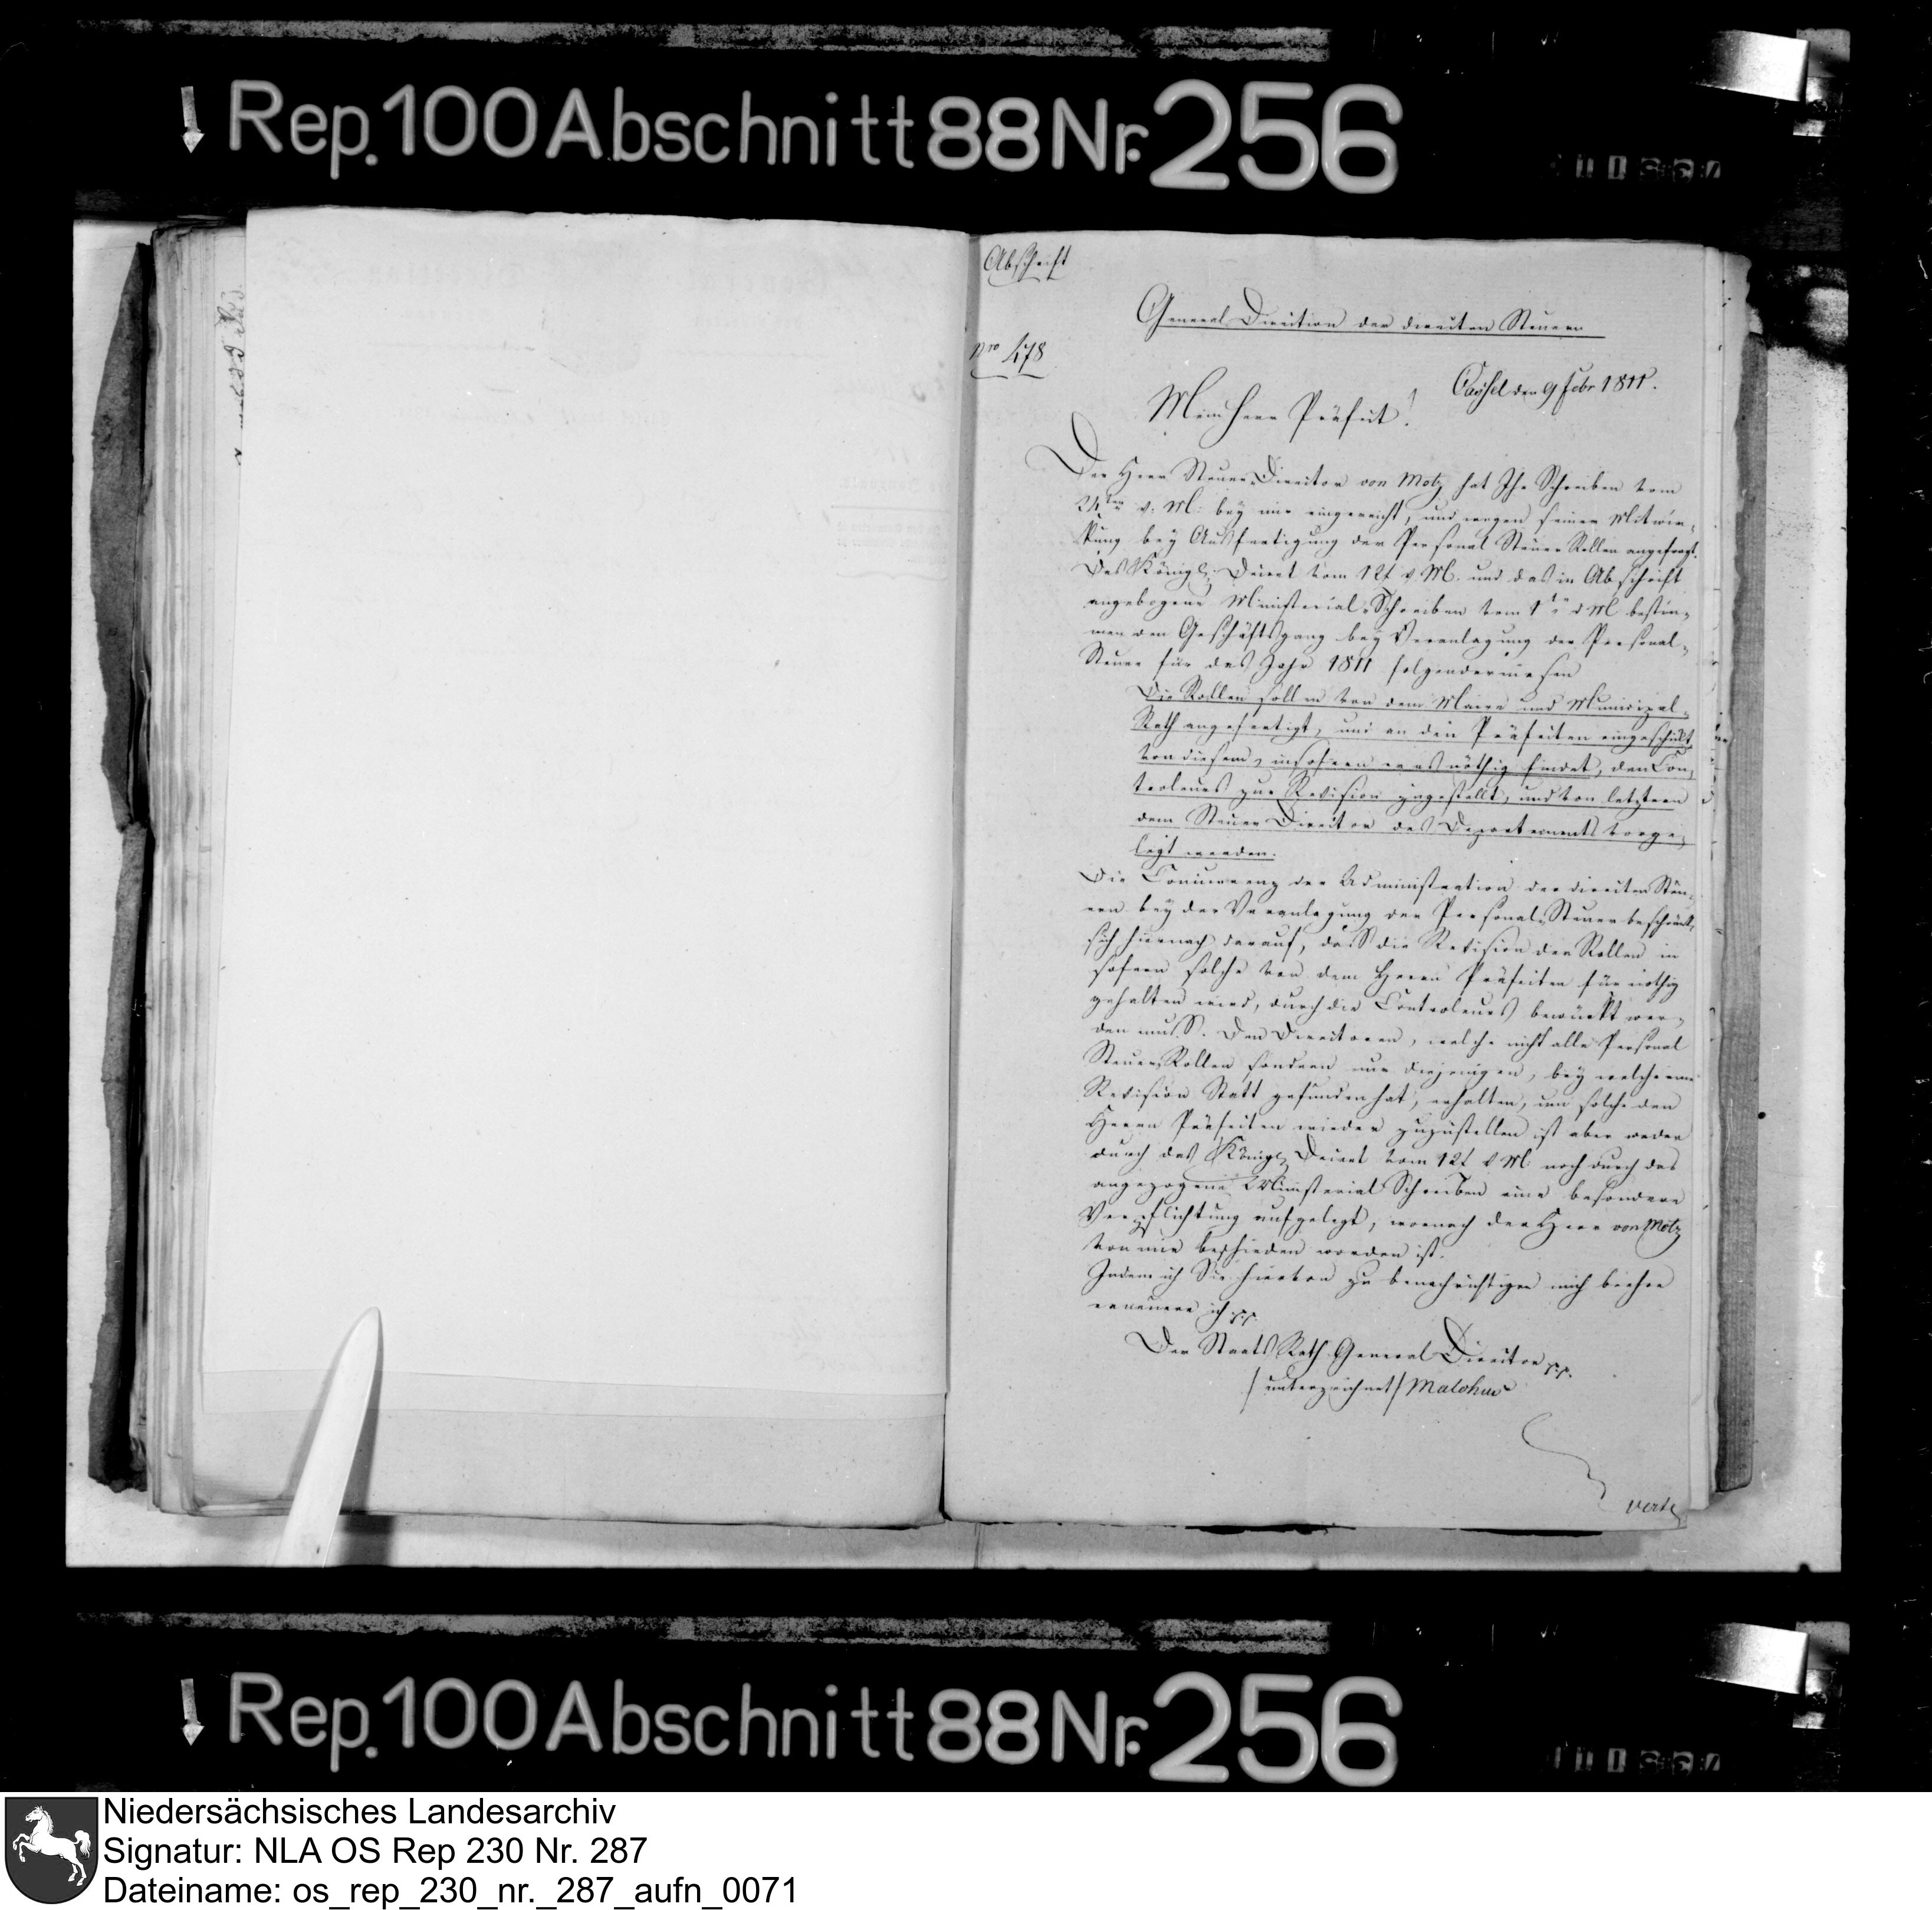 Rep. 100 Abschnitt 88 Nr. 256
Abschrift
General Direction der directen Steuern
Nro 478
Cassel den 9 Febr 1811.
Mein Herr Präfect!
Der Herr Steuer-Director von Motz hat Ihr Schreiben vom
24ten v. M. bey mir eingereicht, und wegen seiner Mitwir-
kung bey Ausfertigung der Personal Steuer Rollen angefragt.
Das Königl. Decret vom 12t v. M. und das in Abschrift
angebogene Ministerial-Schreiben vom 1ten d M bestim-
men den Geschäftsgang bey Veranlagung der Personal-
Steuer für das Jahr 1811 folgendermasen
Die Rollen sollen von dem Maire und Municipal-
Rath angefertigt, und an den Präfecten eingeschickt
von diesem, insofern er es nöthig findet, den Con-
troleurs zur Revision zugestellt, und von letztern
dem Steuer Director des Departements vorge-
legt werden.
Die Concurrenz der Administration der directen Steu-
ern bey der Veranlagung der Personal-Steuer beschränkt
sich hiernach darauf, daß die Revision der Rollen in
sofern solche von dem Herrn Präfecten für nöthig
gehalten wird, durch die Controleurs bewürkt wer-
den muß. Den Directoren, welche nicht alle Personal
Steuer-Rollen sondern nur diejenigen, bey welchen eine
Revision Statt gefunden hat, erhalten, um solche den
Herrn Präfecten wieder zuzustellen ist aber weder
durch das Königl. Decret vom 12t v M. noch durch das
angezogene Ministerial Schreiben eine besondere
Verpflichtung aufgelegt, wornach der Herr von Motz
von mir beschieden worden ist.
Indem ich Sie hiervon zu benachrichtigen mich beehre
erneuere ich pp.
Der Staats Rath General Director pp.
/unterzeichnet/ Malchus
verte
Rep. 100 Abschnitt 88 Nr. 256
Niedersächsisches Landesarchiv
Signatur: NLA OS Rep 230 Nr. 287
Dateiname: os_rep_230_nr._287_aufn_0071